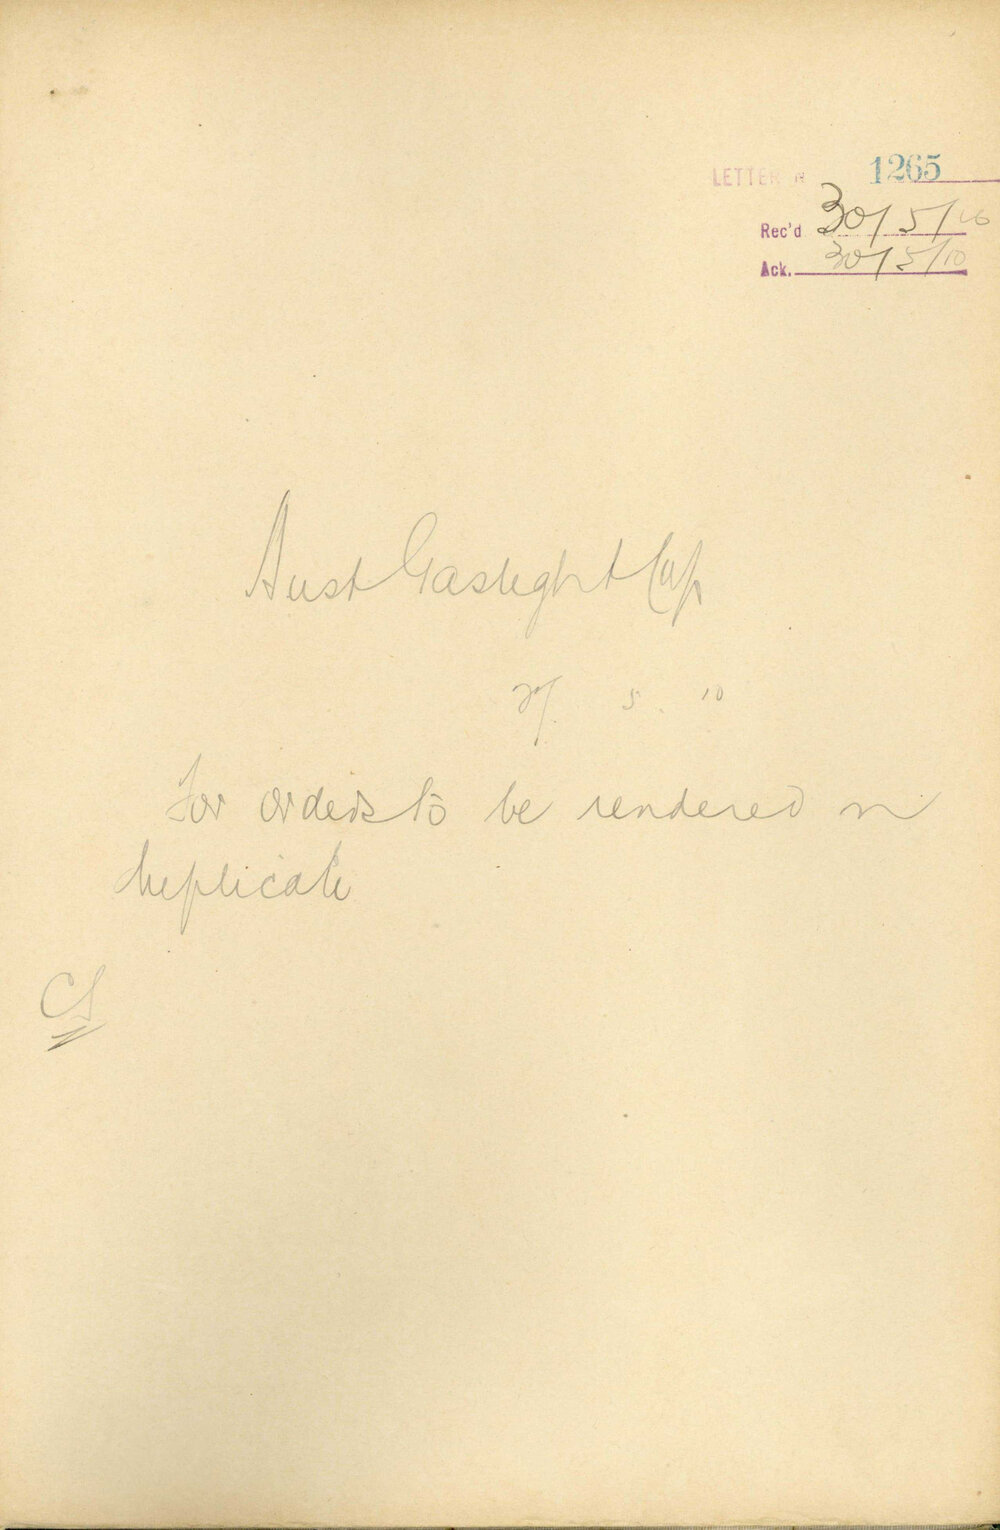 LETTER N 1265
Rec'd 30/5/10
Ack. 30/5/10
Aust Gaslight Coy
27 5 10
For orders to be rendered in
duplicate
CS